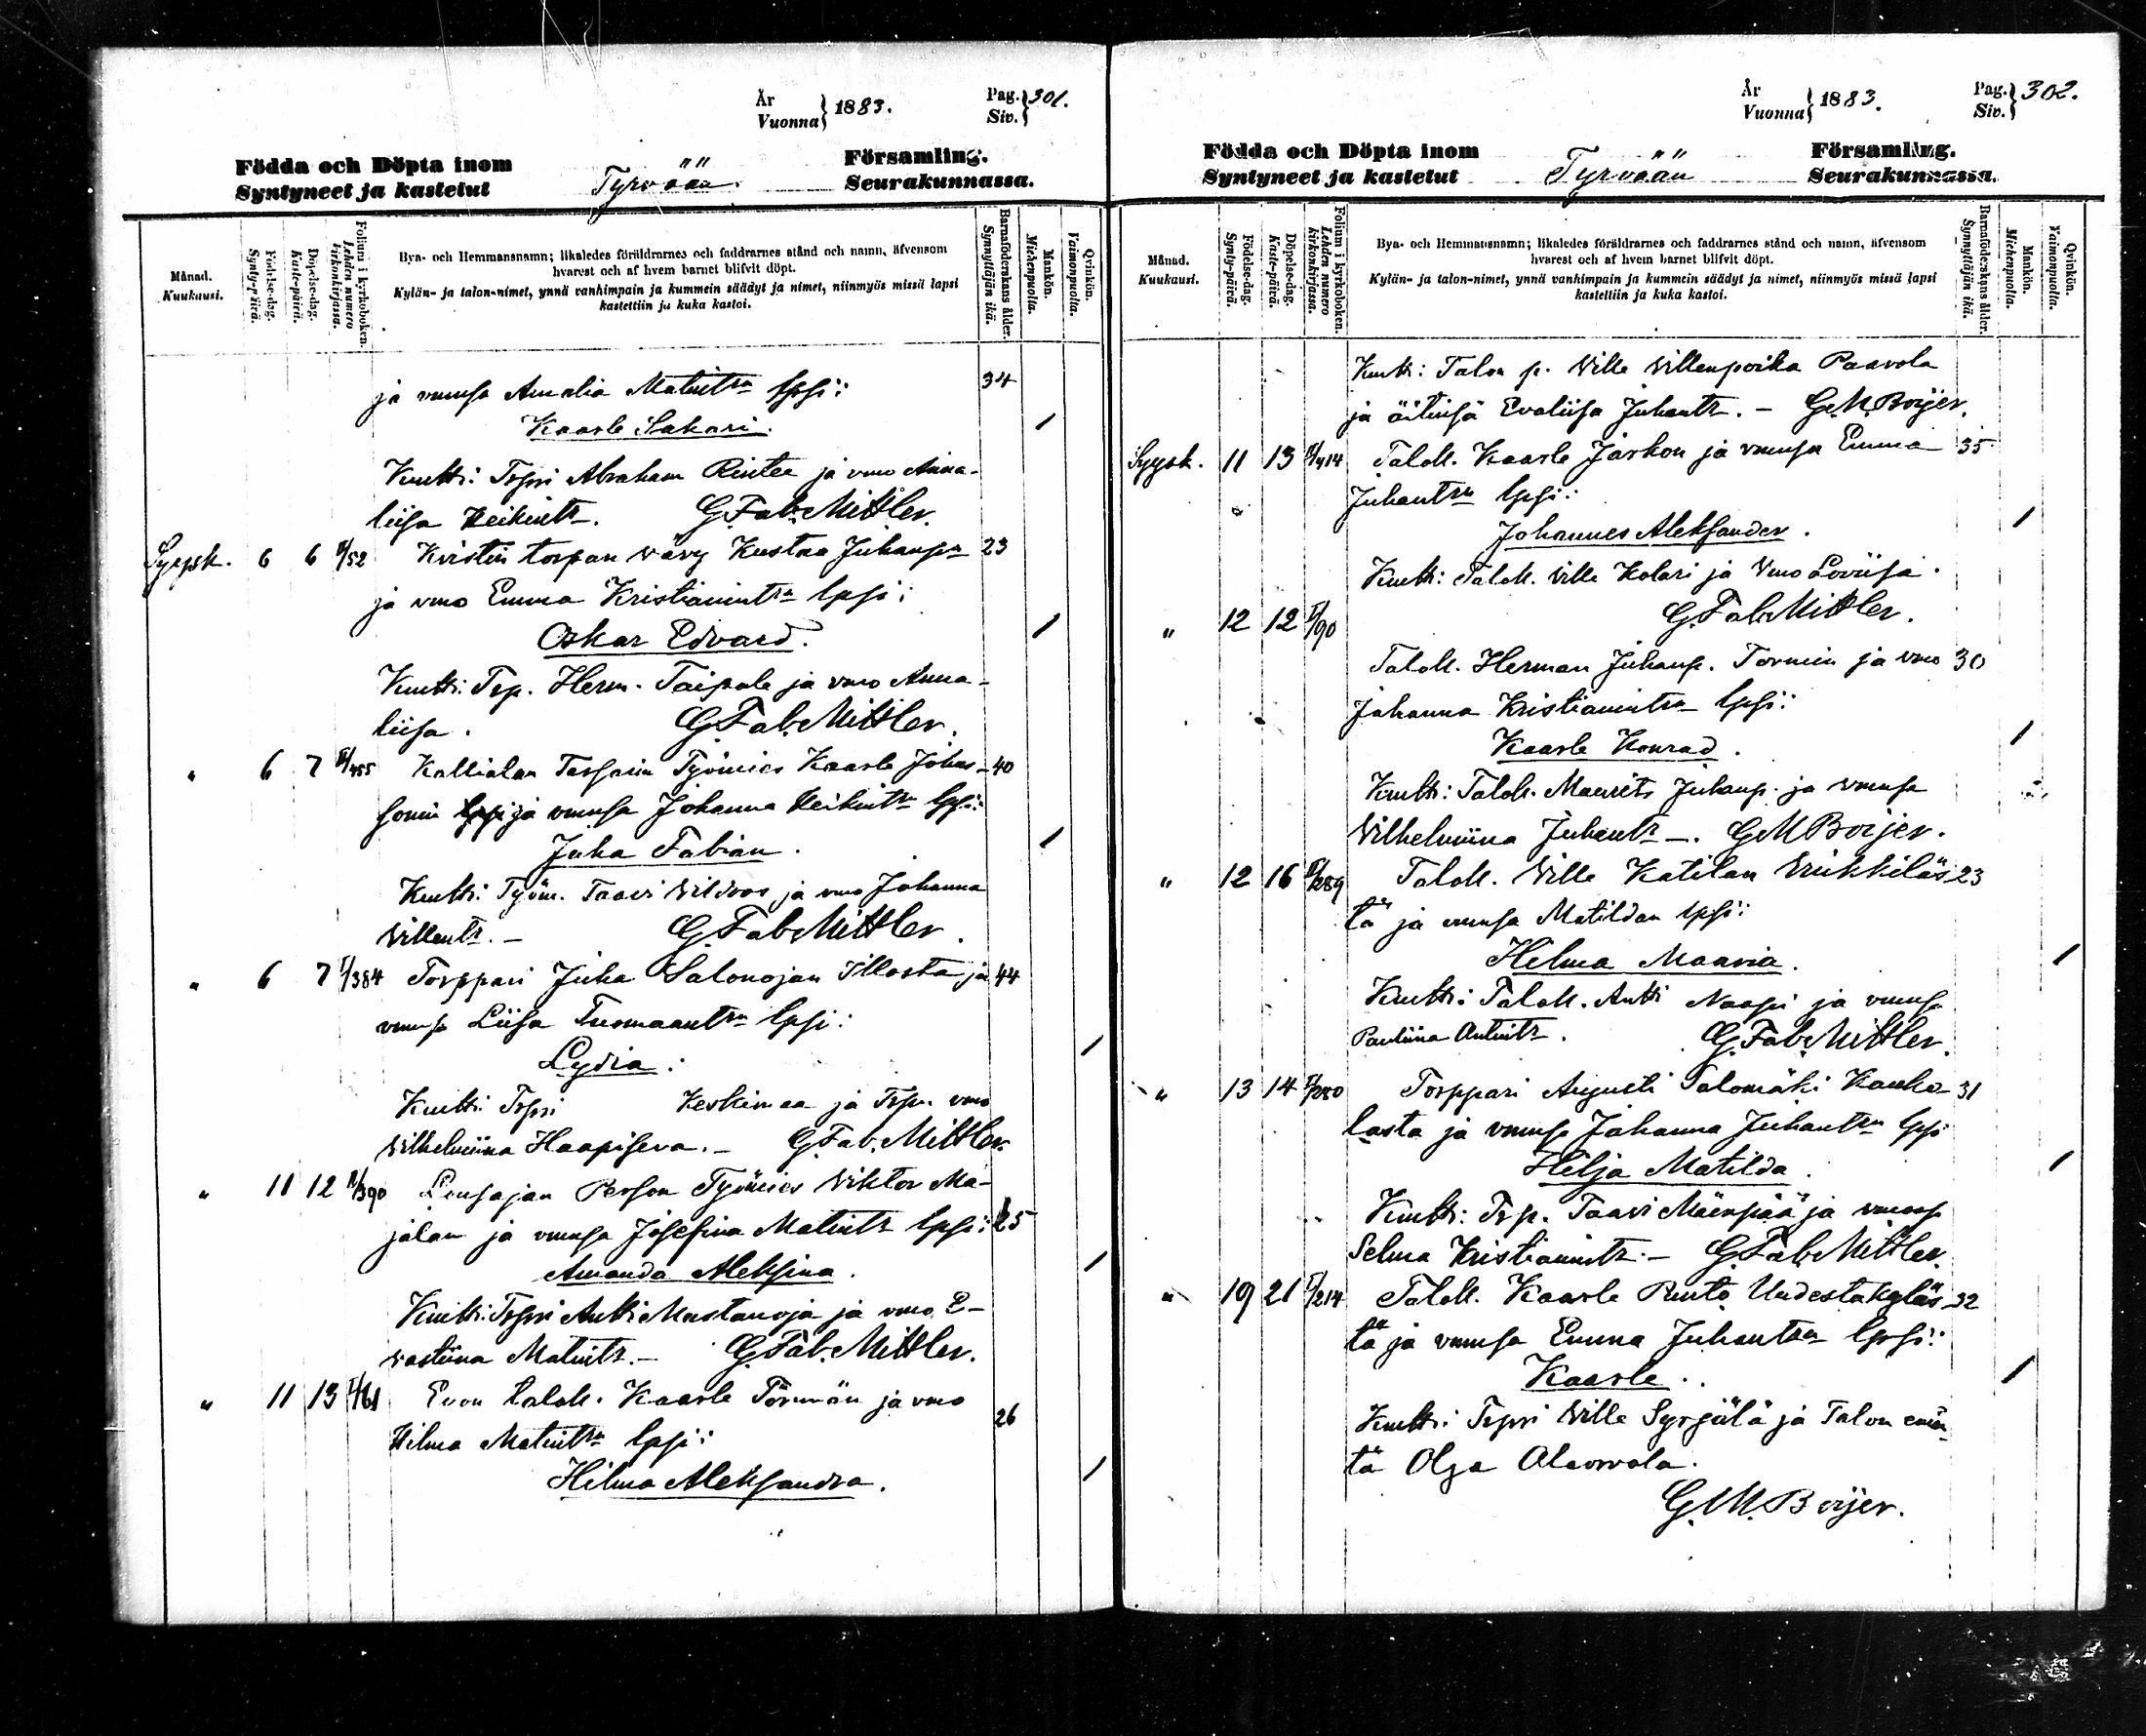 År
Vuonna } 1883.
Pag.
Siv. } 301.
Födda och Döpta inom
Syntyneet ja kastetut
Tyrvään
Församling.
Seurakunnassa.
Månad.
Kuukausi.
Födelse-dag.
Synty-päivä.
Döpelse-dag.
Kaste-päivä.
Folium i kyrkoboken.
Lehden numero kirkonkirjassa.
Bya- och Hemmansnamn; likaledes föräldrarnes och faddrarnes stånd och namn, äfvensom
hvarest och af hvem barnet blifvit döpt.
Kylän- ja talon-nimet, ynnä vanhimpain ja kummein säädyt ja nimet, niinmyös missä lapsi
kastettiin ja kuka kastoi.
Barnaföderskans ålder.
Synnyttäjän ikä.
Mankön.
Miehenpuolia.
Qvinkön.
Vaimonpuolia.
ja vmnsa Amalia Matintrn lpsi: 34
Kaarle Sakari. /
Kmtti: Trpri Abraham Rintee ja vmo Anna-
liisa Heikintr. G. Fab. Mittler.
Syysk. 6 6 /52 Kristin torpan vävy Kustaa Juhanpn 23
ja vmo Emma Kristianintrn lpsi:
Oskar Edvard. /
Kmtti: Trp. Herm. Taipale ja vmo Anna-
liisa. G. Fab. Mittler.
" 6 7 /455 Kallialan Työmies Kaarle Johns- 40
sonin ja vmnsa Johanna Heikintrn lpsi:
Juha Fabian. /
Kmtti: Työm. Taavi Wildroos ja vmo Johanna
Villentr. — G. Fab. Mittler.
" 6 7 /384 Torppari Juha Salonojan Illosta ja 44
vmnsa Liisa Tuomaantrn lpsi:
Lydia. /
Kmtti: Trpri Keskimaa ja Trpn vmo
Wilhelmiina Haapiseva. — G. Fab. Mittler.
" 11 12 /390 Lousajan Person Työmies Viktor Ma-
jalan ja vmnsa Josefina Matintr lpsi: 25
Amanda Aleksina. /
Kmtti: Trpri Antti Mustanoja ja vmo E-
vastiina Matintr. — G. Fab. Mittler.
" 11 13 /61 Evon talok. Kaarle Törmän ja vmo 26
Hilma Matintrn lpsi:
Hilma Aleksandra. /
År
Vuonna } 1883.
Pag.
Siv. } 302.
Födda och Döpta inom
Syntyneet ja kastetut
Tyrvään
Församling.
Seurakunnassa.
Månad.
Kuukausi.
Födelse-dag.
Synty-päivä.
Döpelse-dag.
Kaste-päivä.
Folium i kyrkoboken.
Lehden numero kirkonkirjassa.
Bya- och Hemmansnamn; likaledes föräldrarnes och faddrarnes stånd och namn, äfvensom
hvarest och af hvem barnet blifvit döpt.
Kylän- ja talon-nimet, ynnä vanhimpain ja kummein säädyt ja nimet, niinmyös missä lapsi
kastettiin ja kuka kastoi.
Barnaföderskans ålder.
Synnyttäjän ikä.
Mankön.
Miehenpuolia.
Qvinkön.
Vaimonpuolia.
Kmtti: Talon p. Ville Villenpoika Paavola
ja äitinsä Evaliisa Juhantr. — G. M. Boijer.
Syysk. 11 13 /414 Talok. Kaarle Jaskon ja vmnsa Emma 35
Juhantrn lpsi:
Johannes Aleksander. /
Kmtti: Talok. Ville Kolari ja Vmo Loviisa.
G. Fab. Mittler.
" 12 12 /90
Talok. Herman Juhanp. Tormin ja vmo 30
Johanna Kristianintrn lpsi:
Kaarle Konrad. /
Kmtti: Talok. Maurits Juhanp. ja vmnsa
Wilhelmiina Juhantr —. G M Boijer.
" 12 16 /289 Talok. Ville Katilan Vrikkiläs- 23
tä ja vmnsa Matildan lpsi:
Helma Maaria. /
Kmtti: Talok. Antti Naapi ja vmnsa
Pauliina Antintr. G. Fab. Mittler.
" 13 14 /280 Torppari Augusti Talomäki Kauko- 31
lasta ja vmnsa Johanna Juhantrn lpsi
Hilja Matilda. /
Kmtti: Trp. Taavi Mäenpää ja vmnsa
Selma Kristianintr. — G. Fab. Mittler.
" 19 21 /214 Talok. Kaarle Punto Uudestakyläs- 32
tä ja vmnsa Emma Juhantrn lpsi:
Kaarle. /
Kmtti: Trpri Ville Syrjälä ja Talon emän-
tä Olga Alaorvola.
G. M. Boijer.